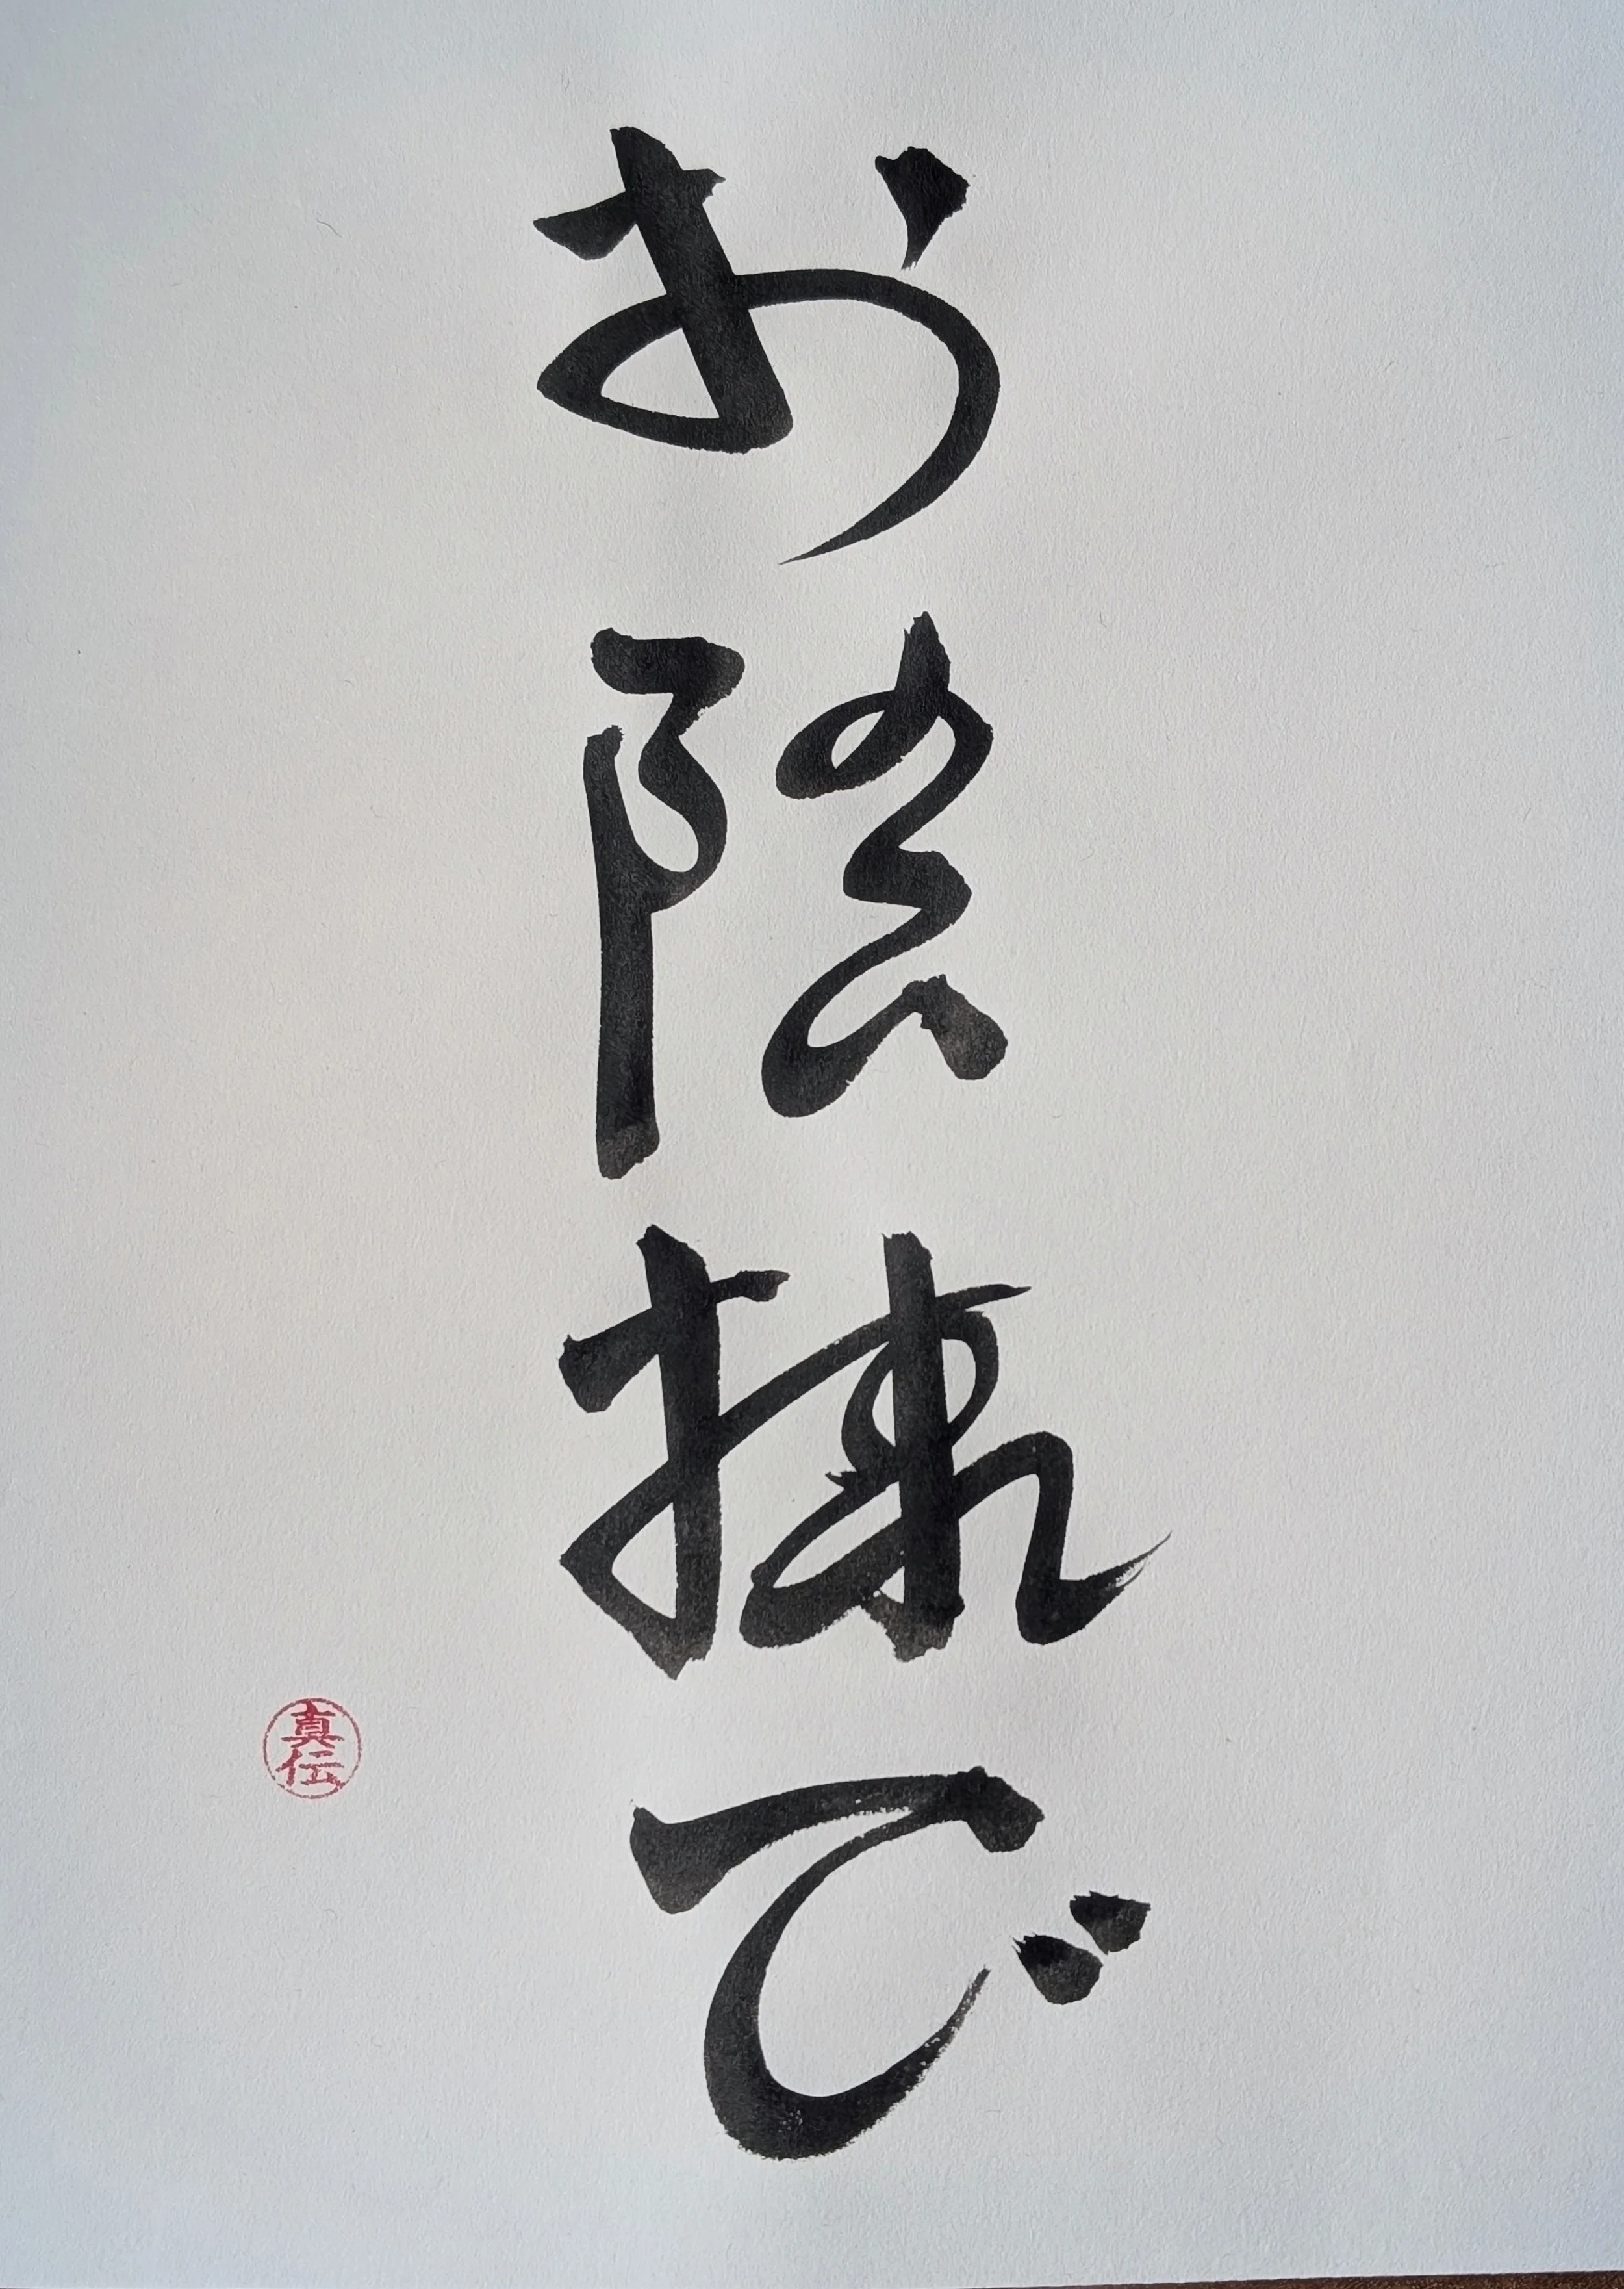 お陰様で
真伝